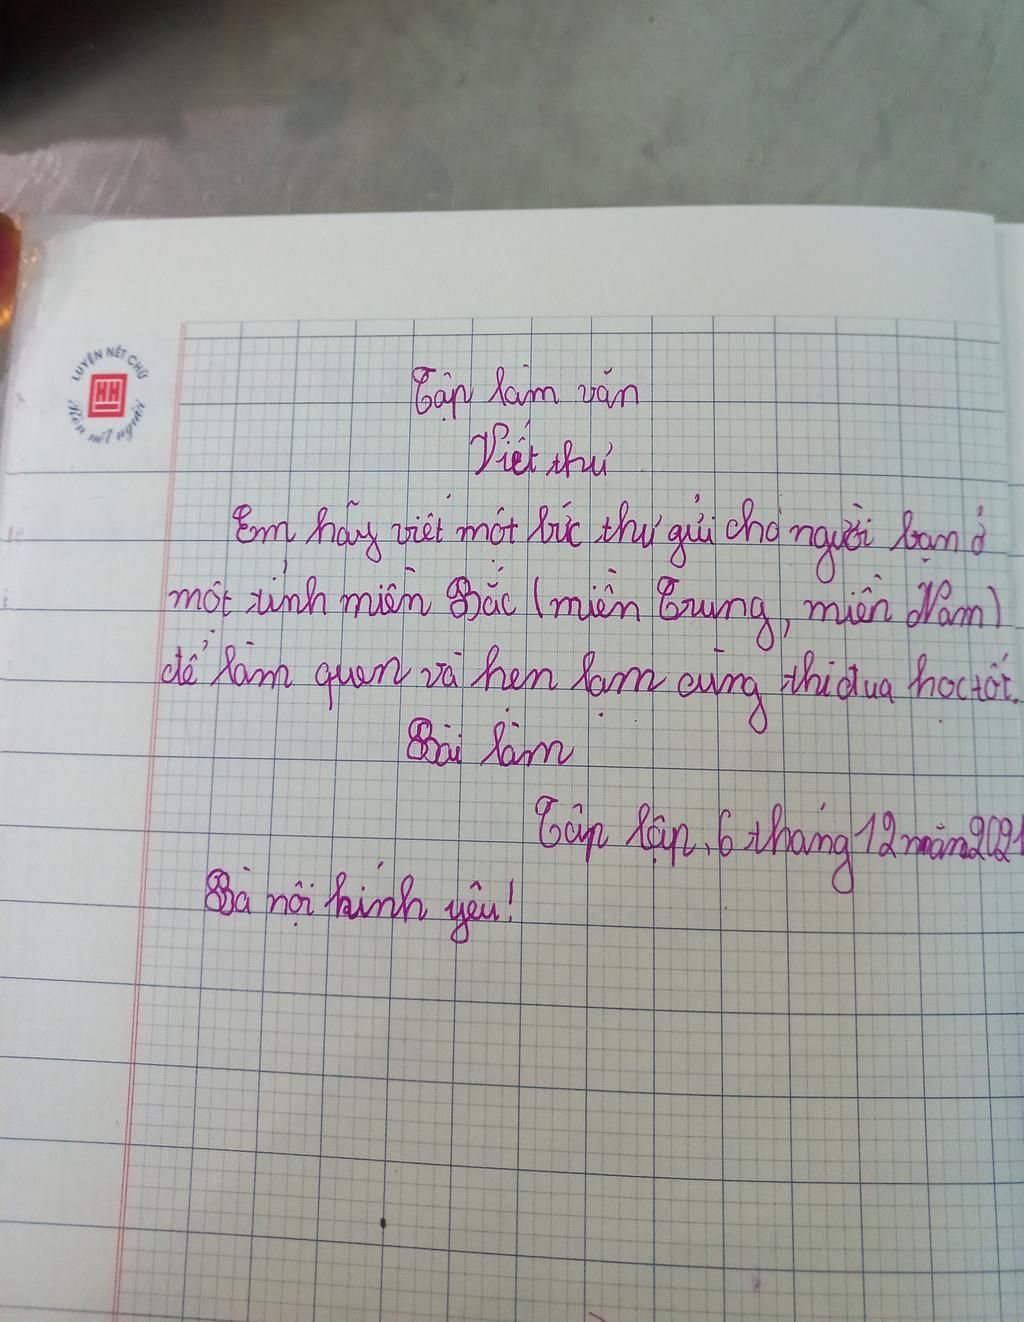 LUYỆN NÉT CHỮ
HH
Rèn nết người
Tập làm văn
Viết thư
Em hãy viết một bức thư gửi cho người bạn ở
một tỉnh miền Bắc (miền Trung, miền Nam)
để làm quen và hẹn bạn cùng thi đua học tốt.
Bài làm
Tân lập, 6 tháng 12 năm 2021
Bà nội kính yêu!